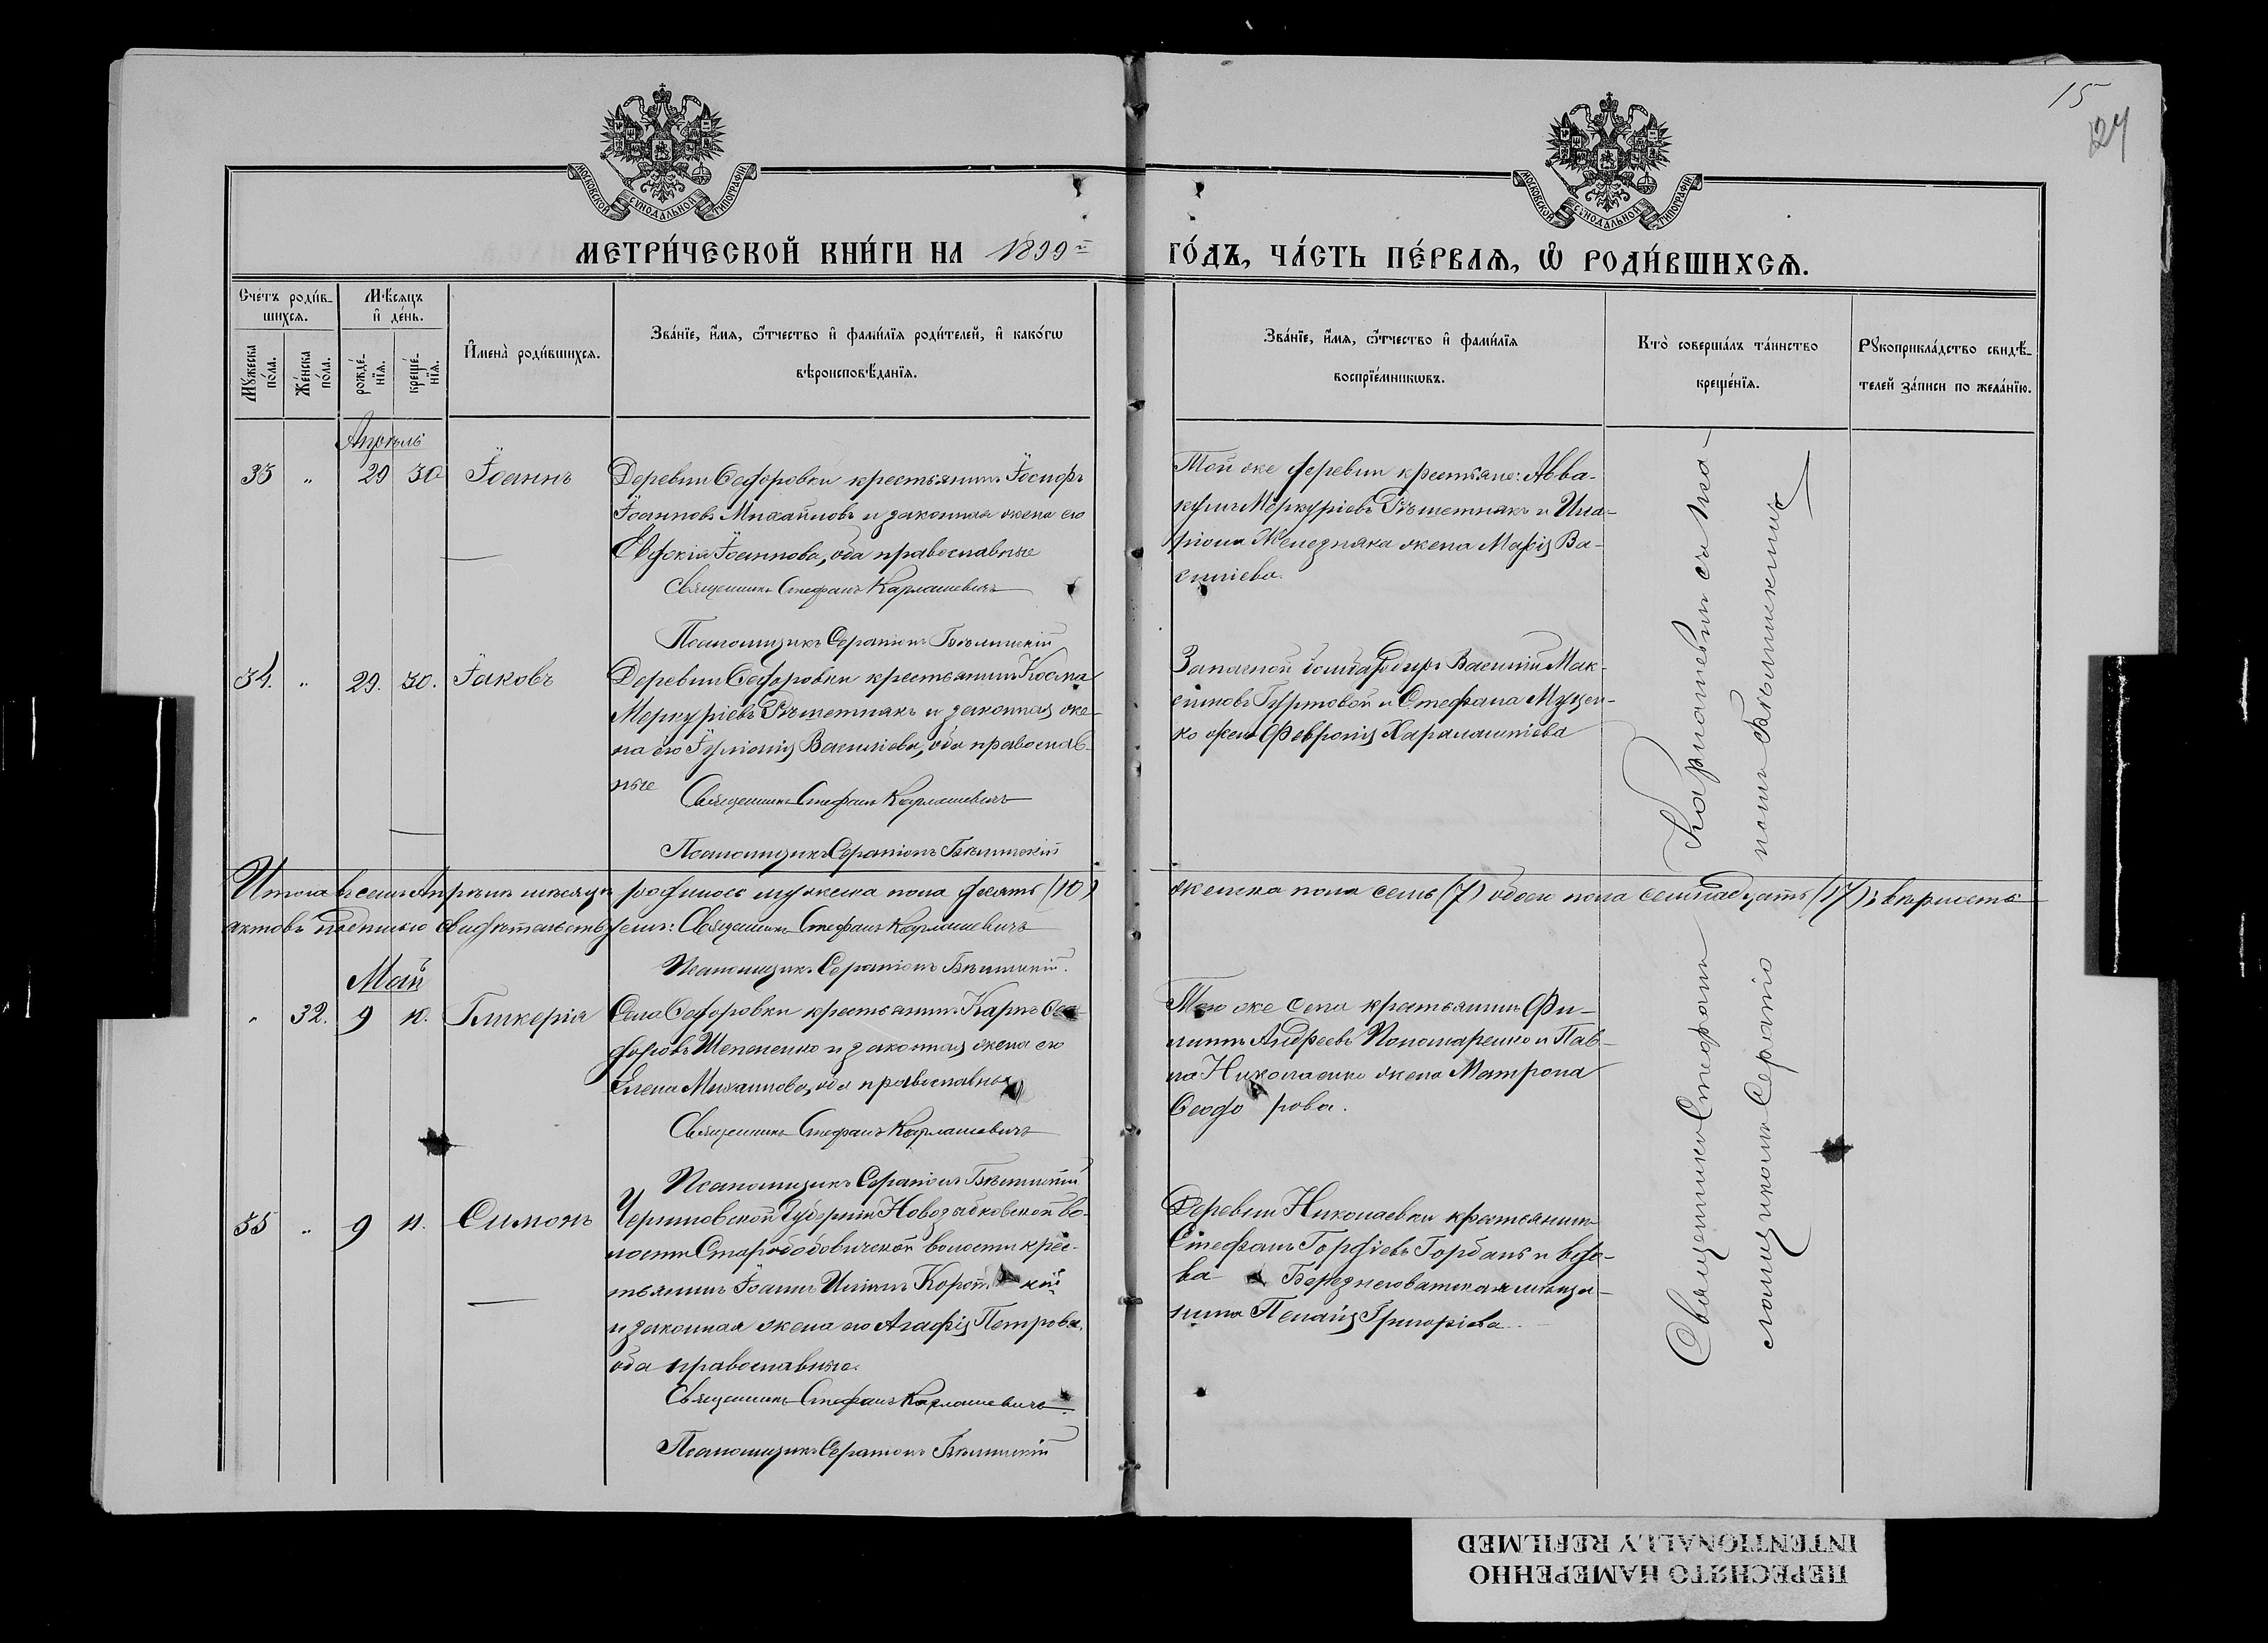 15
124
МОСКОВСКОЙ СѴНОДАЛЬНОЙ ТИПОГРАФІИ
МОСКОВСКОЙ СѴНОДАЛЬНОЙ ТИПОГРАФІИ
МЕТРИ́ЧЕСКОЙ КНИ́ГИ НА 1899й ГО́ДЪ, ЧА́СТЬ ПЕ́РВАѦ, Ѡ РОДИ́ВШИХСѦ.
Счетъ роди́в-
шихсѧ.
Мѣсяцъ
и де́нь.
Му́жеска по́ла.
Же́нска по́ла.
рожде́-
нїѧ.
креще́-
нїѧ.
Имена̀ роди́вшихсѧ.
Зва́нїе, и́мѧ, ѻ́тчество и фами́лїѧ роди́телей, и како́гѡ
вѣроисповѣ́данїѧ.
Зва́нїе, и́мѧ, ѻ́тчество и фами́лїѧ
воспрїе́мникѡвъ.
Кто̀ соверша́лъ та́инство
креще́нїѧ.
Рꙋкоприкла́дство свидѣ́-
телей за́писи по жела́нїю.
Апрѣль
33 " 29 30 Іоаннъ
Деревни Ѳедоровки крестьянинъ Іосифъ
Іоанновъ Михайловъ и законная жена его
Евдокія Іоаннова, оба православные
Священникъ Стефанъ Карлашевичъ
Псаломщикъ Серапіонъ Бѣлинскій
Той же деревни крестьяне: Авва-
кумъ Меркуріевъ Рѣшетнякъ и Ила-
ріона Железняка жена Марія Ва-
силіева.
34. " 29. 30. Іаковъ
Деревни Ѳедоровки крестьянинъ Косма
Меркуріевъ Рѣшетнякъ и законная же-
на его Іуліанія Василіева, оба православ-
ные
Священникъ Стефанъ Карлашевичъ
Псаломщикъ Серапіонъ Бѣлинскій
Запасной бомбардиръ Василій Мак-
симовъ Гуртовой и Стефана Муцен-
ко жена Февронія Харалампіева
Итого въ семъ Апрѣлѣ мѣсяцѣ родилось мужеска пола десять (10) женска пола семь (7) обоего пола семнадцать (17); вѣрность
актовъ подписью свидѣтельствуемъ: Священникъ Стефанъ Карлашевичъ
Псаломщикъ Серапіонъ Бѣлинскій.
Май
" 32. 9 10. Гликерія
Села Ѳедоровки крестьянинъ Карпъ Ѳео-
доровъ Шепеленко и законная жена его
Елена Михаилова, оба православные
Священникъ Стефанъ Карлашевичъ
Псаломщикъ Серапіонъ Бѣлинскій
Того же села крестьянинъ Фи-
липпъ Андреевъ Пономаренко и Пав-
ла Николаенко жена Матрона
Ѳеодорова.
35 " 9 11. Симонъ
Черниговской Губерніи Новозыбковской во-
лости Старобобовичской волости крес-
тьянинъ Іоаннъ Иліинъ Корот кій
и законная жена его Агафія Петрова,
оба православные.
Священникъ Стефанъ Карлашевичъ
Псаломщикъ Серапіонъ Бѣлинскій
Деревни Николаевки крестьянинъ
Стефанъ Гордіевъ Горбань и вдо-
ва Березнеговатская мѣща-
нина Пелагія Григоріева.
Священникъ Стефанъ Карлашевичъ съ пса-
ломщикомъ Серапіономъ Бѣлинскимъ
ПЕРЕСНЯТО НАМЕРЕННО
INTENTIONALLY REFILMED